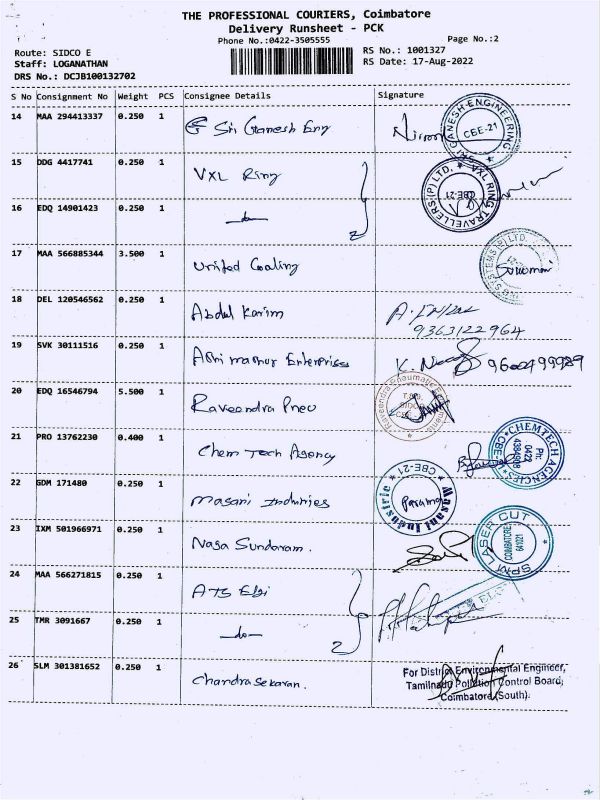 THE PROFESSIONAL COURIERS, Coimbatore
Delivery Runsheet - PCK
Phone No.:0422-3505555 Page No.:2
Route: SIDCO E RS No.: 1001327
Staff: LOGANATHAN RS Date: 17-Aug-2022
DRS No.: DCJB100132702
S No Consignment No Weight PCS Consignee Details Signature
14 MAA 294413337 0.250 1 Sri Ganesh Eng
SRI GANESH ENGINEERING CBE-21
15 DDG 4417741 0.250 1 VXL Ring
VXL RING TRAVELLERS (P) LTD. CBE-21
16 EDQ 14901423 0.250 1 -do-
2
17 MAA 566885344 3.500 1 United Cooling
SYSTEMS (P) LTD.
18 DEL 120546562 0.250 1 Abdul Karim
9363122964
19 SVK 30111516 0.250 1 Enterprises
K. 9600499989
20 EDQ 16546794 5.500 1 Raveendra Pneu
Raveendra Pneumatic
SIDCO
21 PRO 13762230 0.400 1 Chem Tech Agency
CHEMTECH AGENCIES CBE-
Ph: 0422
22 GDM 171480 0.250 1 Masani Industries
CBE-21
23 IXM 501966971 0.250 1 Naga Sundaram.
SPM LASER CUT
COIMBATORE
641021
24 MAA 566271815 0.250 1 ATS Elgi
ELGI
25 TMR 3091667 0.250 1 -do-
2
26 SLM 301381652 0.250 1 Chandra Sekaran.
For District Environmental Engineer,
Tamilnadu Pollution Control Board,
Coimbatore (South).